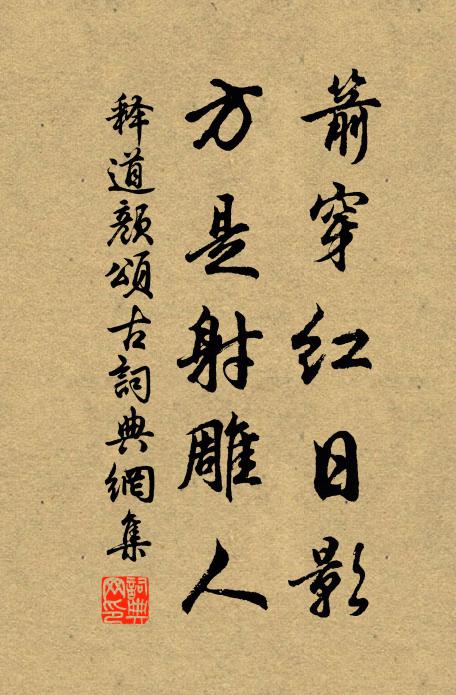 箭穿紅日影
方是射雕人
释道颜頌古詞典網集
詞典
网印